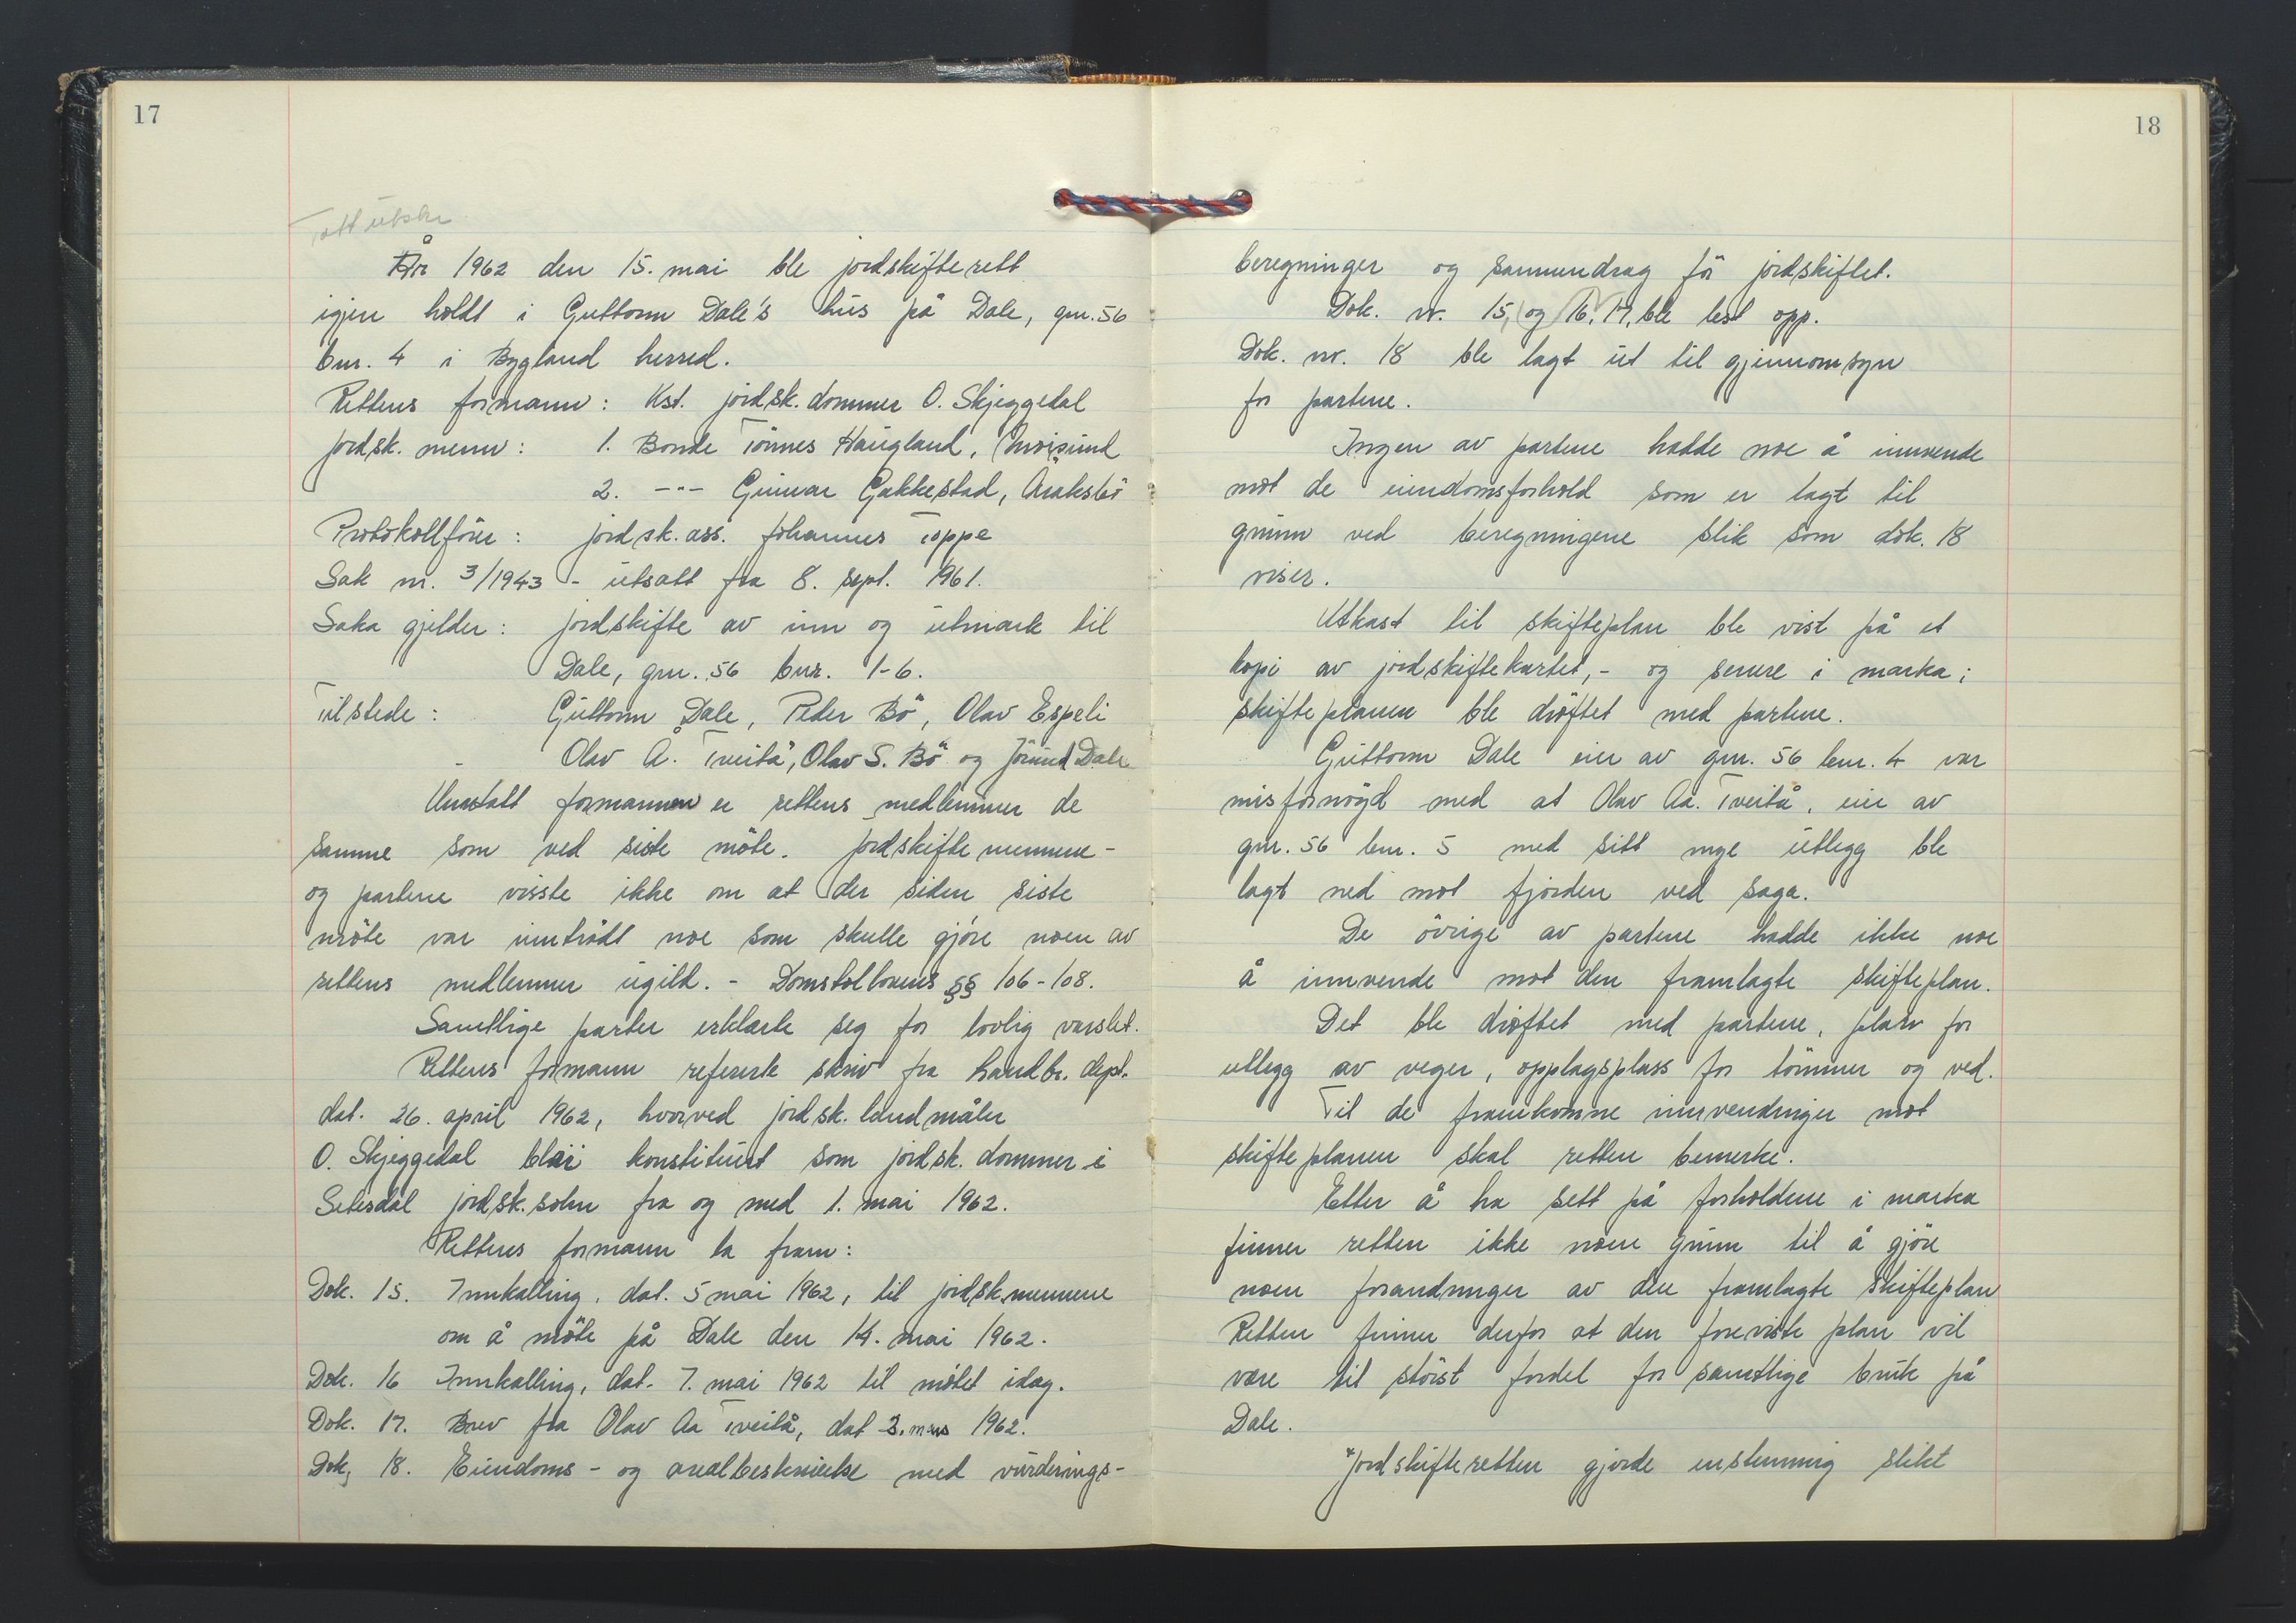 17
Tatt utskr.
År 1962 den 15. mai ble jordskifterett
igjen holdt i Guttorm Dale's hus på Dale, gnr. 56
bnr. 4 i Bygland herred.
Rettens formann: Kst. jordsk. dommer O. Skjeggedal
jordsk. menn: 1. Bonde Tönnes Haugland,
2. -"- Gunnar Gakkestad, Åraksbö
Protokollförer: jordsk. ass. Johannes Toppe
Sak nr. 3/1943 - utsatt fra 8. sept. 1961.
Saka gjelder: jordskifte av inn og utmark til
Dale, gnr. 56 bnr. 1-6.
Tilstede: Guttorm Dale, Peder Bö, Olav Espeli
Olav A. Tveitå, Olav S. Bö og Jörund Dale
Unntatt formannen er rettens medlemmer de
samme som ved siste möte. Jordskiftemennene -
og partene visste ikke om at der siden siste
möte var inntrådt noe som skulle gjöre noen av
rettens medlemmer ugild. - Domstollovens §§ 106-108.
Samtlige parter erklærte seg for lovlig varslet.
Rettens formann refererte skriv fra Landbr. dept.
dat. 26. april 1962, hvorved jordsk. landmåler
O. Skjeggedal blei konstituert som jordsk. dommer i
Setesdal jordsk. sokn fra og med 1. mai 1962.
Rettens formann la fram:
Dok. 15. Innkalling, dat. 5 mai 1962, til jordsk.mennene
om å möte på Dale den 14. mai 1962.
Dok. 16 Innkalling, dat. 7. mai 1962 til mötet idag.
Dok. 17. Brev fra Olav Aa Tveitå, dat 3. mars 1962.
Dok. 18. Eiendoms - og arealbeskrivelse med vurderings-
18
beregninger og sammendrag för jordskiftet.
Dok. nr. 15, og 16, 17, ble lest opp.
Dok. nr. 18 ble lagt ut til gjennomsyn
for partene.
Ingen av partene hadde noe å innvende
mot de eiendomsforhold som er lagt til
grunn ved beregningene slik som dok. 18
viser.
Utkast til skifteplan ble vist på et
kopi av jordskiftekartet, - og senere i marka;
skifteplanen ble dröftet med partene.
Guttorm Dale eier av gnr. 56 bnr. 4 var
misfornöyd med at Olav Aa. Tveitå, eier av
gnr. 56 bnr. 5 med sitt nye utlegg ble
lagt ned mot fjorden ved saga.
De övrige av partene hadde ikke noe
å innvende mot den framlagte skifteplan.
Det ble dröftet med partene, plan for
utlegg av veger, opplagsplass for tömmer og ved.
Til de framkomne innvendinger mot
skifteplanen skal retten bemerke.
Etter å ha sett på forholdene i marka
finner retten ikke noen grunn til å gjöre
noen forandringer av den framlagte skifteplan
Retten finner derfor at den foreviste plan vil
være til störst fordel for samtlige bruk på
Dale.
Jordskifteretten gjorde enstemmig slikt